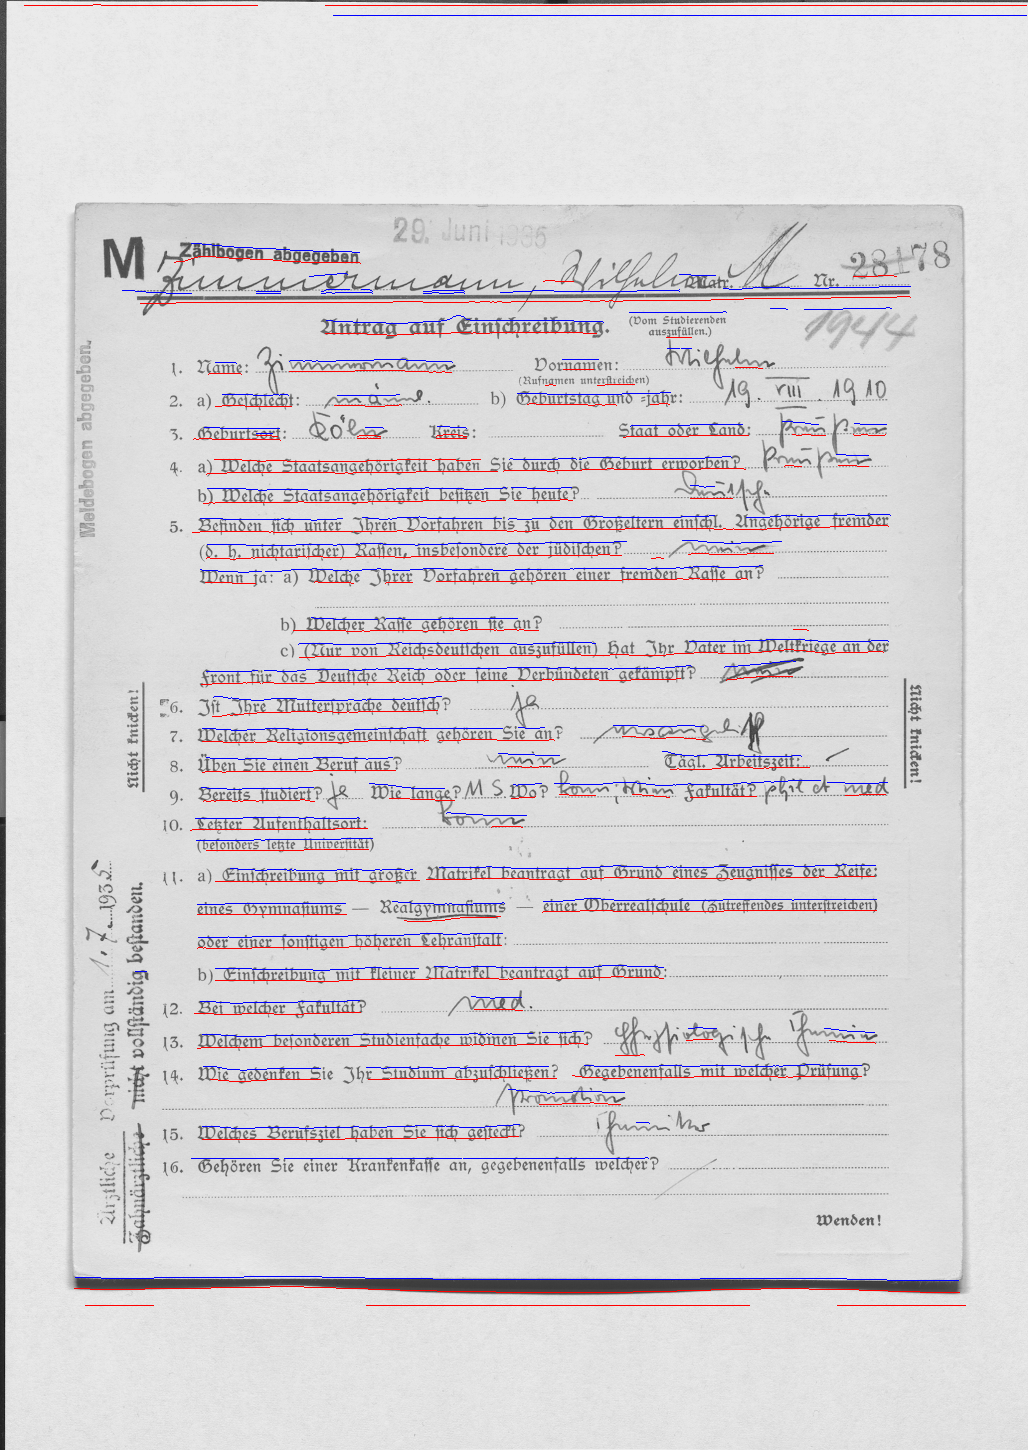 29. Juni 1935
M Zählbogen abgegeben
Zimmermann, Wilhelm Matr. M Nr. 28178
Antrag auf Einschreibung. (Vom Studierenden auszufüllen.) 1944
1. Name: Zimmermann Vornamen: Wilhelm
(Rufnamen unterstreichen)
2. a) Geschlecht: männl. b) Geburtstag und =jahr: 19. VIII. 1910
3. Geburtsort: Köln Kreis: Staat oder Land: Preußen
4. a) Welche Staatsangehörigkeit haben Sie durch die Geburt erworben? Preußen
b) Welche Staatsangehörigkeit besitzen Sie heute? Deutsch.
5. Befinden sich unter Ihren Vorfahren bis zu den Großeltern einschl. Angehörige fremder
(d. h. nichtarischer) Rassen, insbesondere der jüdischen? nein
Wenn ja: a) Welche Ihrer Vorfahren gehören einer fremden Rasse an?
b) Welcher Rasse gehören sie an?
c) (Nur von Reichsdeutschen auszufüllen) Hat Ihr Vater im Weltkriege an der
Front für das Deutsche Reich oder seine Verbündeten gekämpft? nein
6. Ist Ihre Muttersprache deutsch? ja
7. Welcher Religionsgemeinschaft gehören Sie an?
8. Üben Sie einen Beruf aus? nein Tägl. Arbeitszeit:
9. Bereits studiert? ja Wie lange? 11 S. Wo? Bonn, Fakultät? phil et med
10. Letzter Aufenthaltsort: Bonn
(besonders letzte Universität)
11. a) Einschreibung mit großer Matrikel beantragt auf Grund eines Zeugnisses der Reife:
eines Gymnasiums — Realgymnasiums — einer Oberrealschule (Zutreffendes unterstreichen)
oder einer sonstigen höheren Lehranstalt:
b) Einschreibung mit kleiner Matrikel beantragt auf Grund:
12. Bei welcher Fakultät? med.
13. Welchem besonderen Studienfache widmen Sie sich? Physiologische Chemie
14. Wie gedenken Sie Ihr Studium abzuschließen? Gegebenenfalls mit welcher Prüfung?
Promotion
15. Welches Berufsziel haben Sie sich gesteckt? Chemiker
16. Gehören Sie einer Krankenkasse an, gegebenenfalls welcher?
Wenden!
Meldebogen abgegeben.
Nicht knicken!
Nicht knicken!
Ärztliche Vorprüfung am 1. 7. 1935.
Zahnärztliche nicht vollständig bestanden.